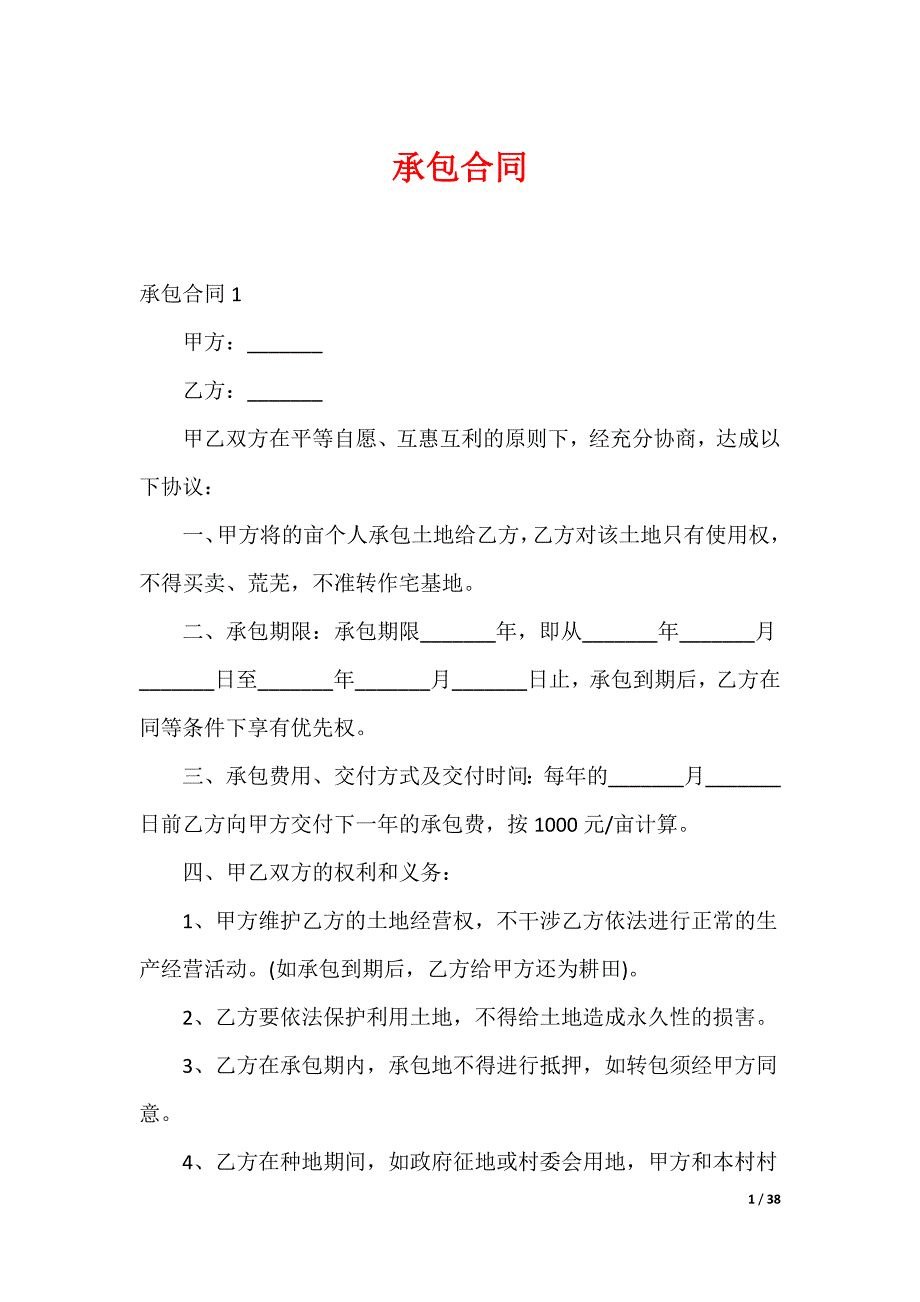 承包合同
承包合同 1
甲方：_______
乙方：_______
甲乙双方在平等自愿、互惠互利的原则下，经充分协商，达成以
下协议：
一、甲方将的亩个人承包土地给乙方，乙方对该土地只有使用权，
不得买卖、荒芜，不准转作宅基地。
二、承包期限：承包期限_______年，即从_______年_______月
_______日至_______年_______月_______日止，承包到期后，乙方在
同等条件下享有优先权。
三、承包费用、交付方式及交付时间：每年的_______月_______
日前乙方向甲方交付下一年的承包费，按 1000 元/亩计算。
四、甲乙双方的权利和义务：
1、甲方维护乙方的土地经营权，不干涉乙方依法进行正常的生
产经营活动。(如承包到期后，乙方给甲方还为耕田)。
2、乙方要依法保护利用土地，不得给土地造成永久性的损害。
3、乙方在承包期内，承包地不得进行抵押，如转包须经甲方同
意。
4、乙方在种地期间，如政府征地或村委会用地，甲方和本村村
1 / 38